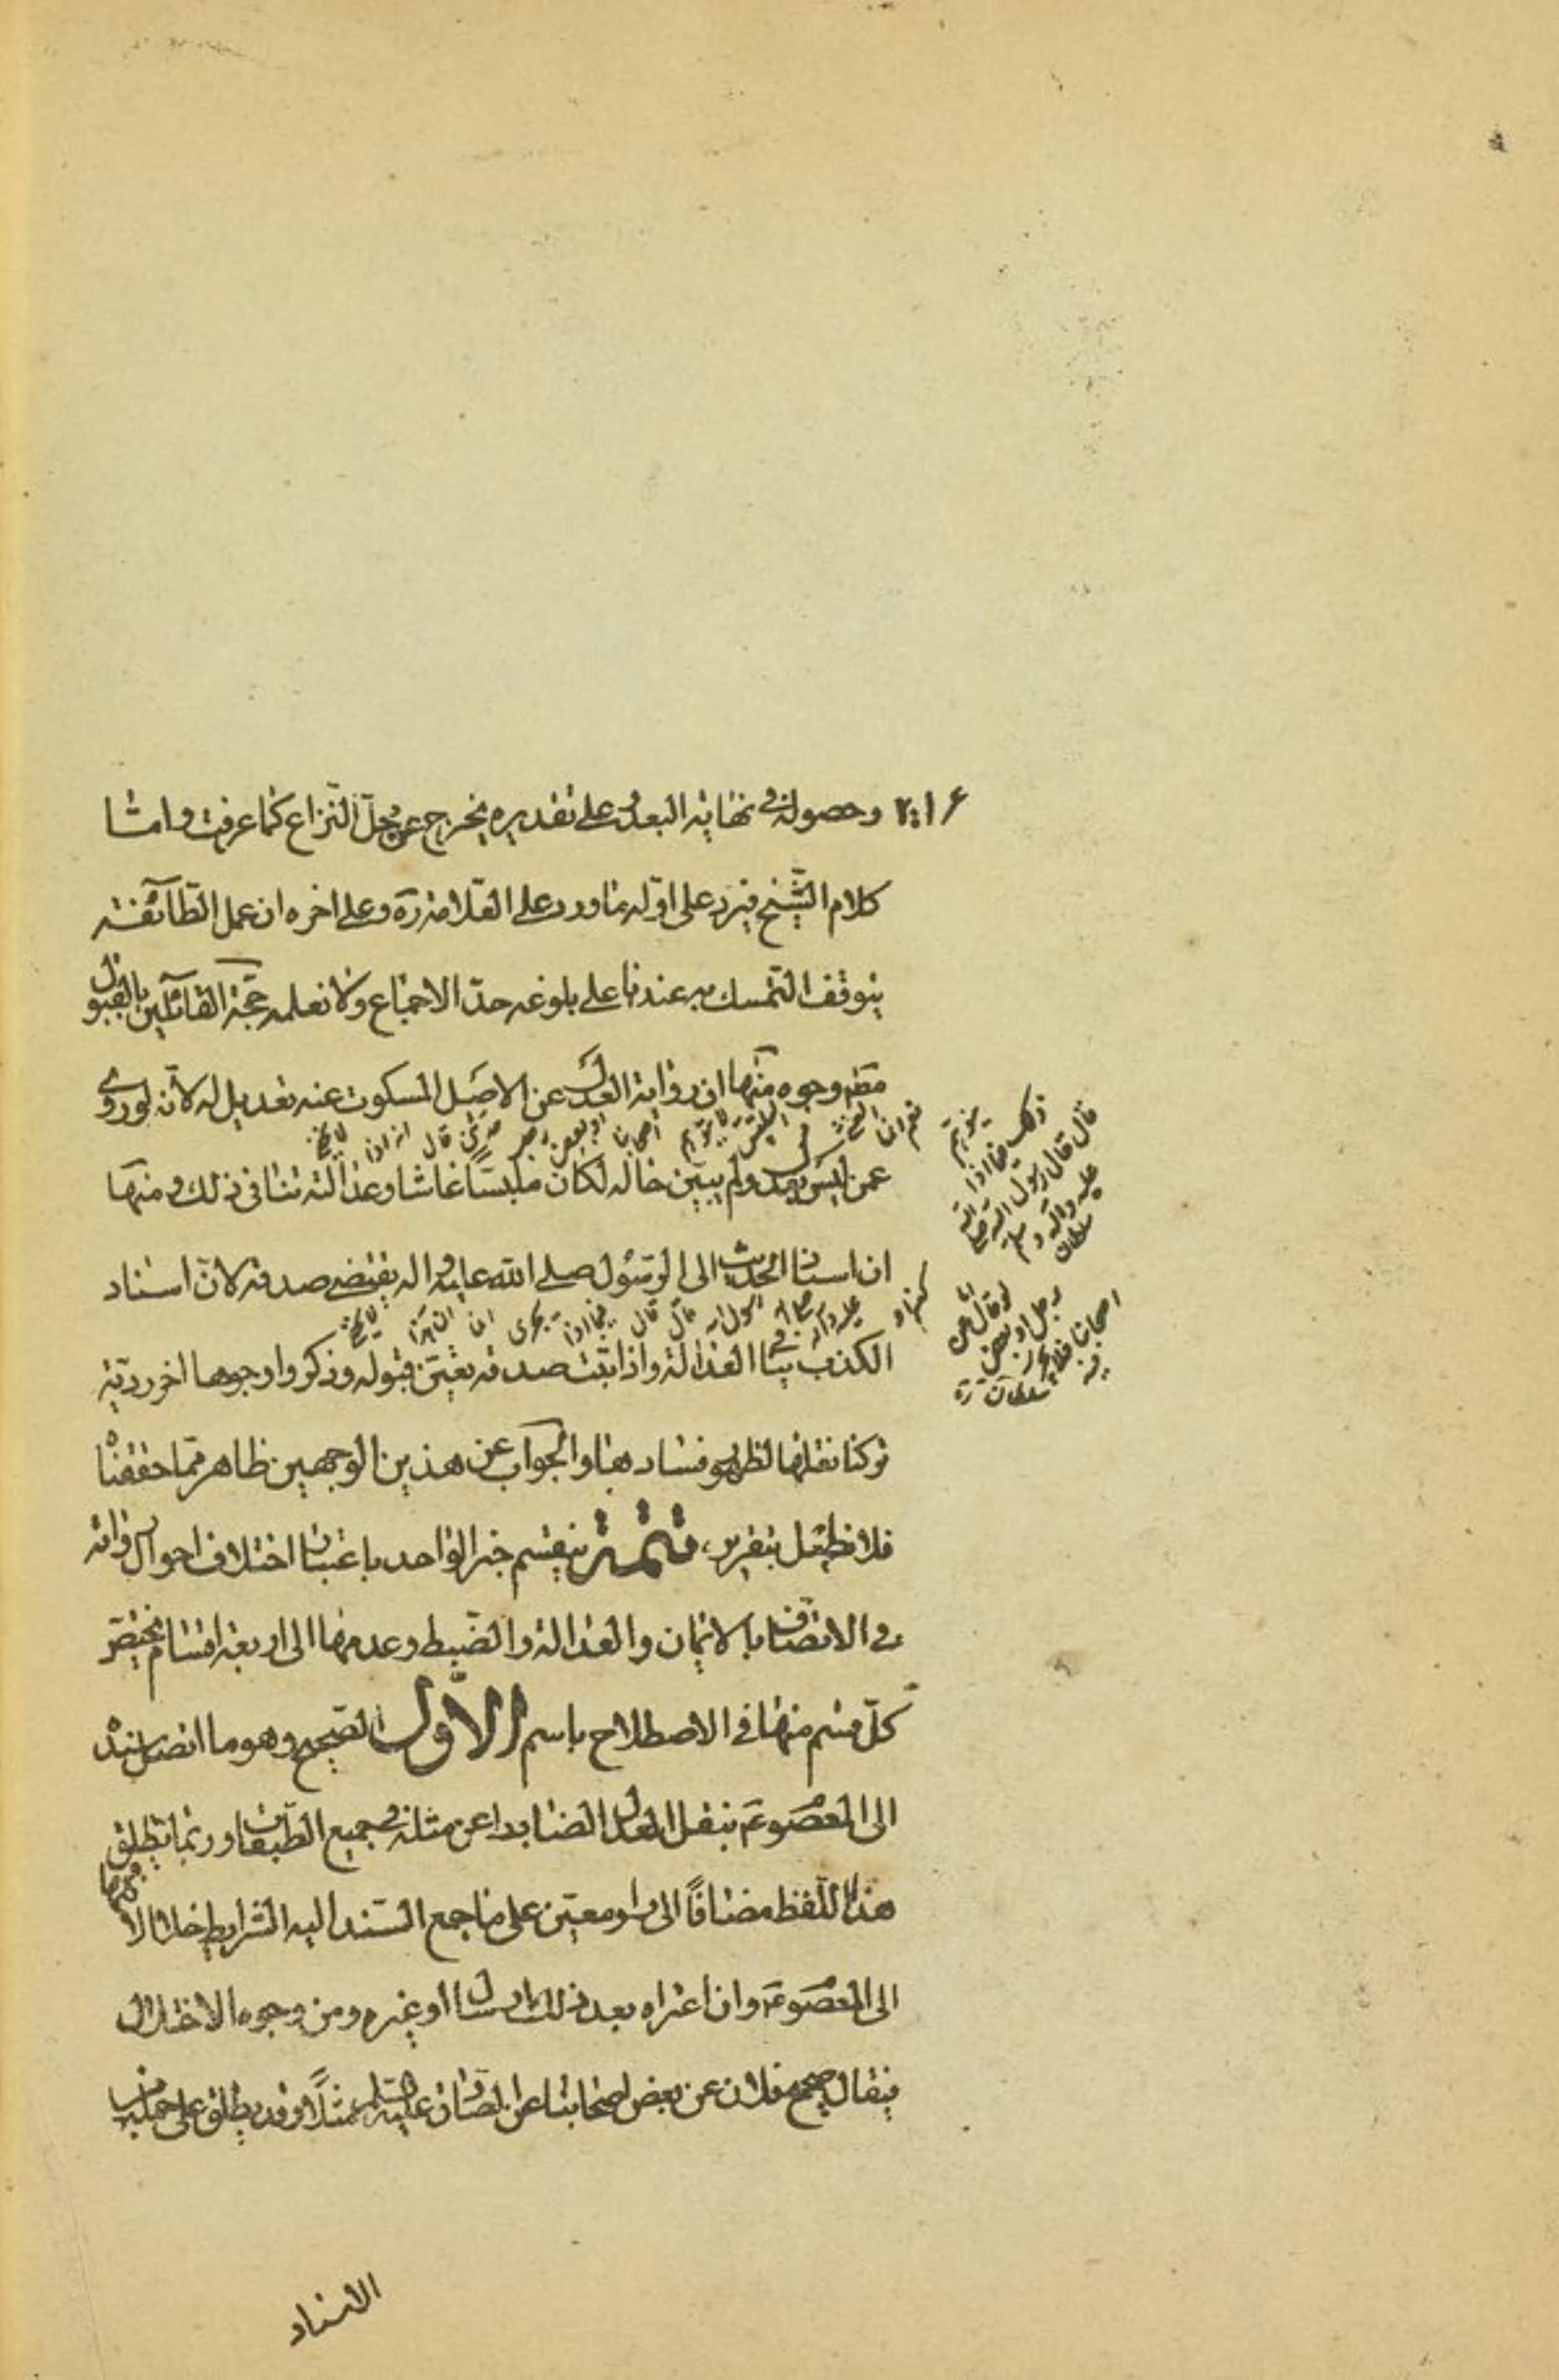 وحصوله في نهاية البعد وعلى تقديره يخرج عن محل النزاع كما عرفت واما
كلام الشيخ فيرد على اوله ما ورد على العلامة ره وعلى اخره ان عمل الطائفة
يتوقف التمسك به عندنا على بلوغه حد الاجماع ولا نعلمه حجة القائلين بالقبول
مطم وجوه منها ان رواية العدل عن الاصل المسكوت عنه تعديل له لانه لو روى
عمن ليس بعدل ولم يبين حاله لكان ملبسا غاشا وعدالته تنافي ذلك ومنها
ان اسناد الحديث الى الرسول صلى الله عليه واله يقتضي صدقه لان اسناد
الكذب ينافي العدالة واذا ثبت صدقه تعين قبوله وذكروا وجوها اخر ردية
تركنا نقلها لظهور فسادها والجواب عن هذين الوجهين ظاهر مما حققناه
فلا نطيل بتقريره تتمة ينقسم خبر الواحد باعتبار اختلاف احوال رواته
في الاتصاف بالايمان والعدالة والضبط وعدمها الى اربعة اقسام يختص
كل قسم منها في الاصطلاح باسم الاول الصحيح وهو ما اتصل سنده
الى المعصوم ع بنقل العدل الضابط عن مثله في جميع الطبقات وربما يطلق
هذا اللفظ مضافا الى راو معين على ما جمع السند اليه الشرايط خلا الا
الى المعصوم ع وان اعتراه بعد ذلك ارسال او غيره من وجوه الاختلال
فيقال صحيح فلان عن بعض اصحابنا عن الصادق عليه السلم مثلا وقد يطلق على جملة من
الاسناد
ذلك فيما اذا
قال قال رسول الله صلى الله
عليه واله وسلم
سلطان
لو قال عن
رجل او بعض
اصحابنا فلا
سلطان ره